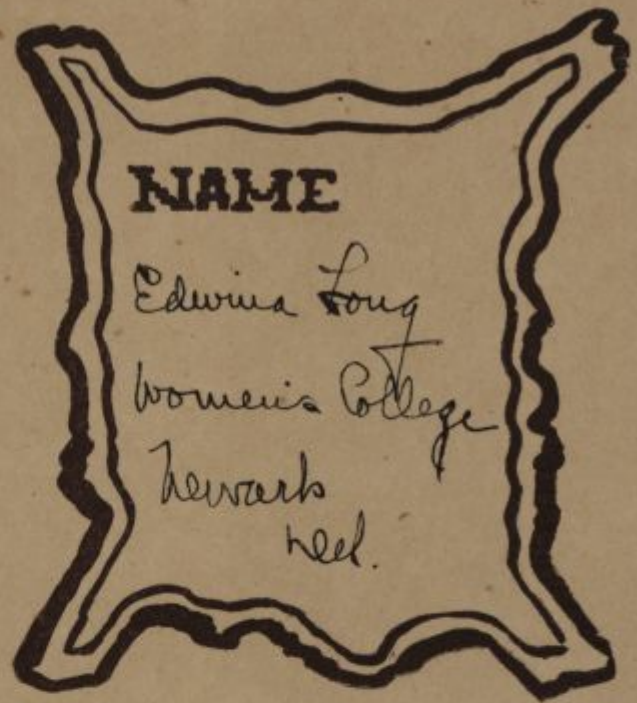 NAME
Edwina Long
Women's College
Newark
Del.